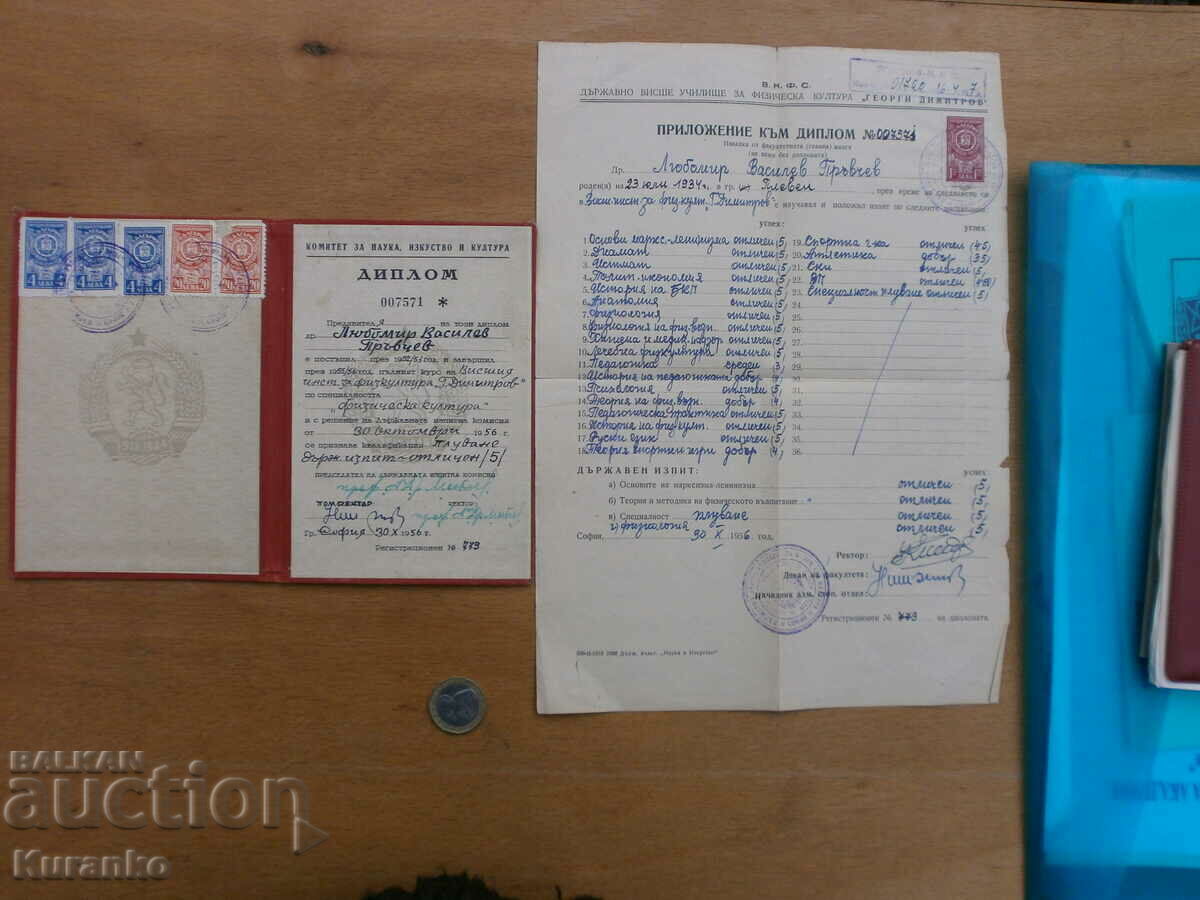 КОМИТЕТ ЗА НАУКА, ИЗКУСТВО И КУЛТУРА
ДИПЛОМ
007571 *
на този диплом
др. Любомир Василев
Пръвчев
е постъпил през 1952/53 год. и завършил
през пълният курс на Висшия
инст. за физкултура "Г. Димитров"
по специалността
"физическа култура"
и с решение на Държавната изпитна комисия
от 30 октомври 1956 г.
се признава квалификация Плуване
държ. изпит - отличен /5/
ПРЕДСЕДАТЕЛ НА ДЪРЖАВНАТА ИЗПИТНА КОМИСИЯ
РЕКТОР
Гр. София 30 X 1956 г.
Регистрационен № 773
4 4 4 20 20
В. К. Ф. С.
ДЪРЖАВНО ВИСШЕ УЧИЛИЩЕ ЗА ФИЗИЧЕСКА КУЛТУРА „ГЕОРГИ ДИМИТРОВ"
ПРИЛОЖЕНИЕ КЪМ ДИПЛОМ № 007571
(не важи без дипломата)
Др. Любомир Василев Пръвчев
роден(а) на 23 юли 1934 г. в гр. Плевен, през време на следването си
в Висш инст. за физкулт. "Г. Димитров" е изучавал и положил изпит по следните дисциплини:
успех успех
1. Основи маркс.-ленинизма отличен (5)
2. Диамат отличен (5)
3. Истмат отличен (5)
4. Полит. икономия отличен (5)
5. История на БКП отличен (5)
6. Анатомия отличен (5)
7. Физиология отличен (5)
8. Физиология на физ. отличен (5)
9. Хигиена и медик. отличен (5)
10. Лечебна физкултура отличен (5)
11. Педагогика среден (3)
12. История на педагогиката добър (4)
13. Психология отличен (5)
14. Теория на физ. добър (4)
15. Педагогическа практика отличен (5)
16. История на физкулт. отличен (5)
17. Руски език отличен (5)
18. Теория спортни игри добър (4)
19. Спортна г-ка отличен (4.5)
20. Атлетика добър (3.5)
21. Ски отличен (5)
22. отличен
23. Специалност плуване отличен (5)
24.
25.
26.
27.
28.
29.
30.
31.
32.
33.
34.
35.
36.
ДЪРЖАВЕН ИЗПИТ: успех
а) Основите на марксизма-ленинизма отличен (5)
б) Теория и методика на физическото възпитание отличен (5)
в) Специалност плуване отличен (5)
г) физиология отличен (5)
София, 30 X 1956 год.
Ректор:
Декан на факултета:
Началник
Регистрационен № 773 на дипломата
BALKAN
auction
Kuranko